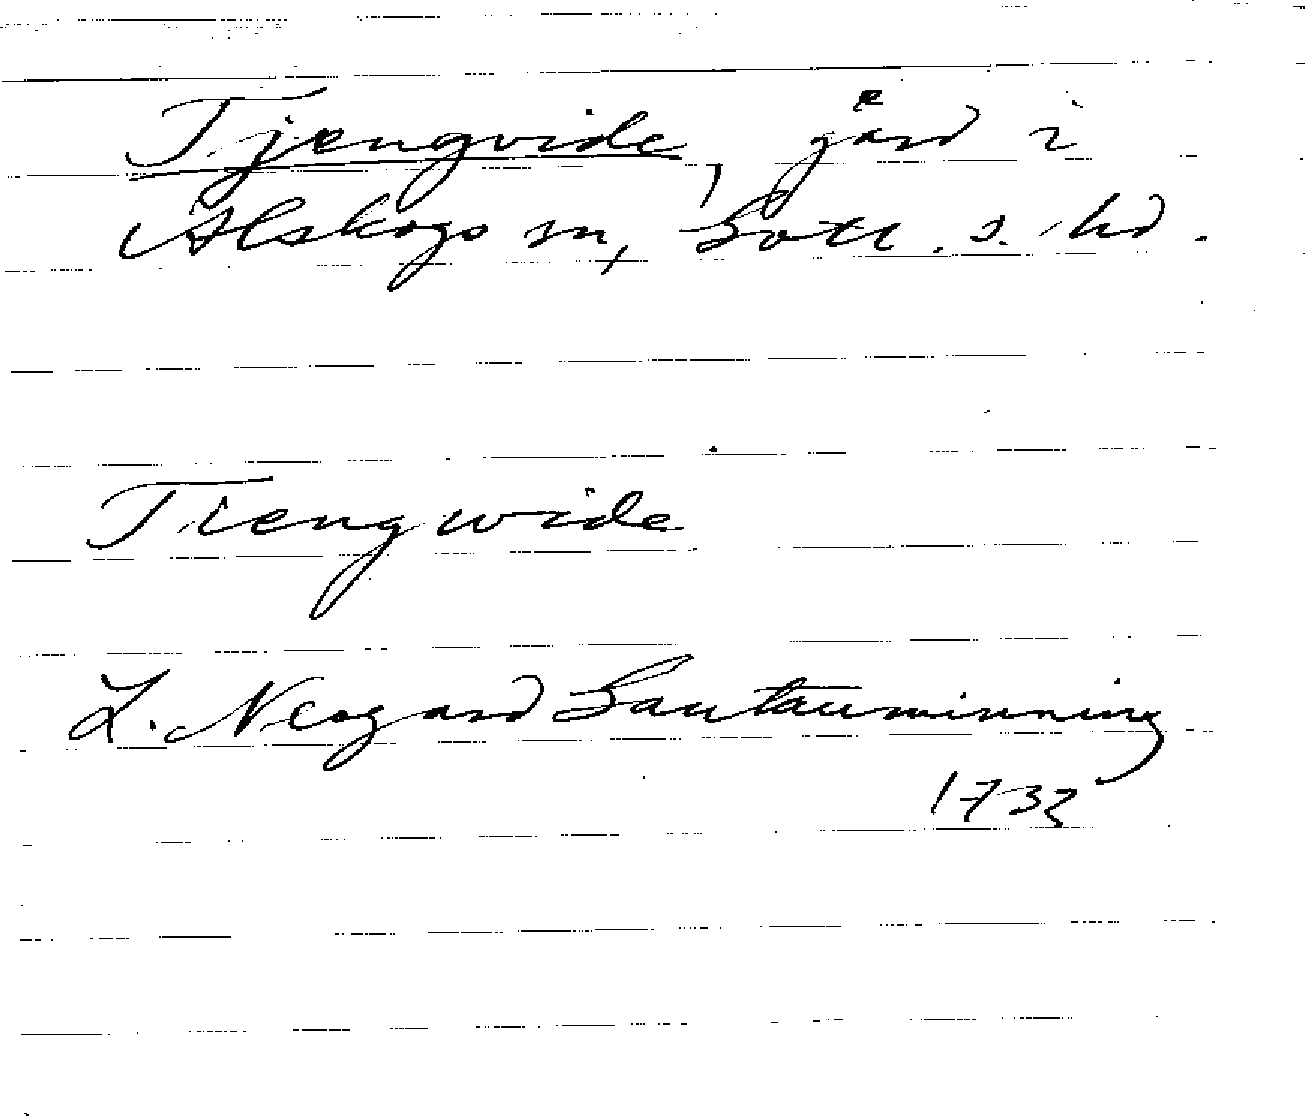 Tjengvide, gård i
Alskogs sn, Gotl. s. hd.
Tiengwide
L. Neogard Gautauminning
1732